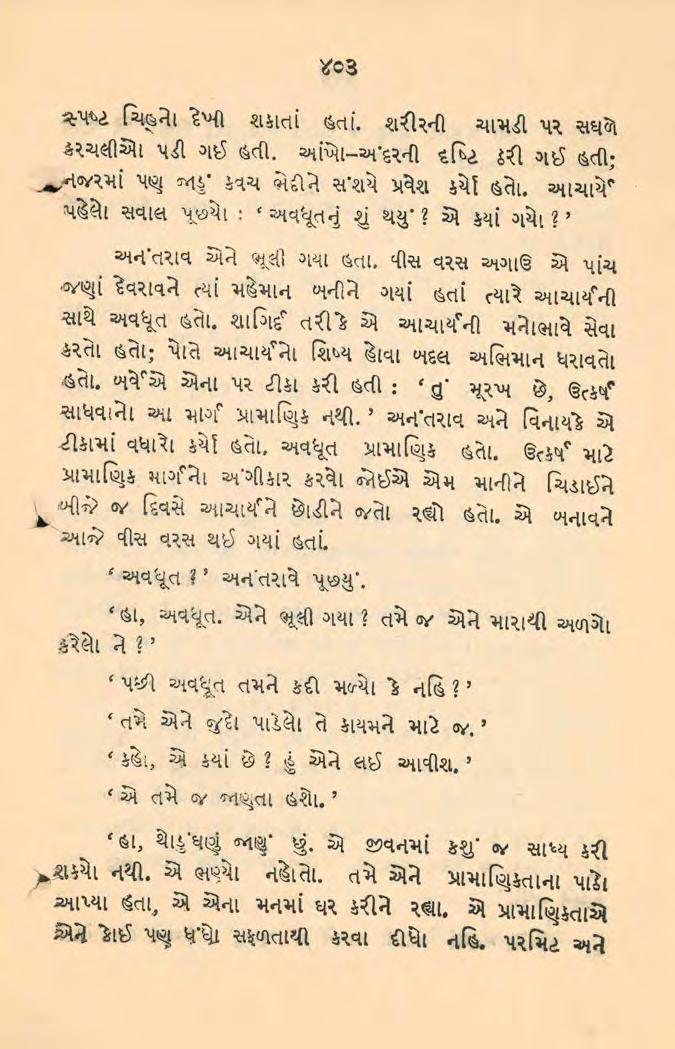 ૪૦૩
સ્પષ્ટ ચિહ્નો દેખી શકાતાં હતાં. શરીરની ચામડી પર સઘળે
કરચલીઓ પડી ગઈ હતી. આંખો–અંદરની દૃષ્ટિ ઠરી ગઈ હતી;
નજરમાં પણ જાડું કવચ ભેદીને સંશયે પ્રવેશ કર્યો હતો. આચાર્યે
પહેલો સવાલ પૂછ્યો : ‘ અવધૂતનું શું થયું ? એ કયાં ગયો ? ’
અનંતરાવ એને ભૂલી ગયા હતા. વીસ વરસ અગાઉ એ પાંચ
જણાં દેવરાવને ત્યાં મહેમાન બનીને ગયાં હતાં ત્યારે આચાર્યની
સાથે અવધૂત હતો. શાગિર્દ તરીકે એ આચાર્યની મનોભાવે સેવા
કરતો હતો; પોતે આચાર્યનો શિષ્ય હોવા બદલ અભિમાન ધરાવતો
હતો. બર્વેએ એના પર ટીકા કરી હતી : ‘ તું મૂરખ છે, ઉત્કર્ષ
સાધવાનો આ માર્ગ પ્રામાણિક નથી. ’ અનંતરાવ અને વિનાયકે એ
ટીકામાં વધારો કર્યો હતો. અવધૂત પ્રામાણિક હતો. ઉત્કર્ષ માટે
પ્રામાણિક માર્ગનો અંગીકાર કરવો જોઈએ એમ માનીને ચિડાઈને
બીજે જ દિવસે આચાર્યને છોડીને જતો રહ્યો હતો. એ બનાવને
આજે વીસ વરસ થઈ ગયાં હતાં.
‘ અવધૂત ? ’ અનંતરાવે પૂછયું.
‘ હા, અવધૂત. એને ભૂલી ગયા ? તમે જ એને મારાથી અળગો
કરેલો ને ? ’
‘ પછી અવધૂત તમને કદી મળ્યો કે નહિ ? ’
‘ તમે એને જુદો પાડેલો તે કાયમને માટે જ. ’
‘ કહો, એ કયાં છે ? હું એને લઈ આવીશ. ’
‘ એ તમે જ જાણતા હશો. ’
‘ હા, થોડુંઘણું જાણું છું. એ જીવનમાં કશું જ સાધ્ય કરી
શકયો નથી. એ ભણ્યો નહોતો. તમે એને પ્રામાણિકતાના પાઠો
આપ્યા હતા, એ એના મનમાં ઘર કરીને રહ્યા. એ પ્રામાણિકતાએ
એને કોઈ પણ ધંધો સફળતાથી કરવા દીધો નહિ. પરમિટ અને